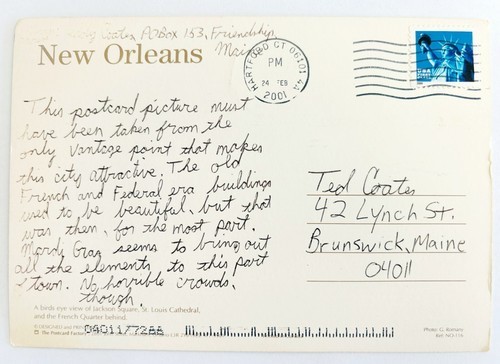 Coates, PO Box 153, Friendship,
Maine
New Orleans
HARTFORD CT 06101 4A
PM
24 FEB
2001
This postcard picture must
have been taken from the
only vantage point that makes
this city attractive. The old
French and Federal era buildings
used to be beautiful, but that
was then, for the most part.
Mardi Gras seems to bring out
all the elements to this part
of town. No horrible crowds,
though.
Ted Coates
42 Lynch St.
Brunswick, Maine
04011
A birds eye view of Jackson Square, St. Louis Cathedral,
and the French Quarter behind.
The Postcard Factory
Photo: G. Romany
04011772